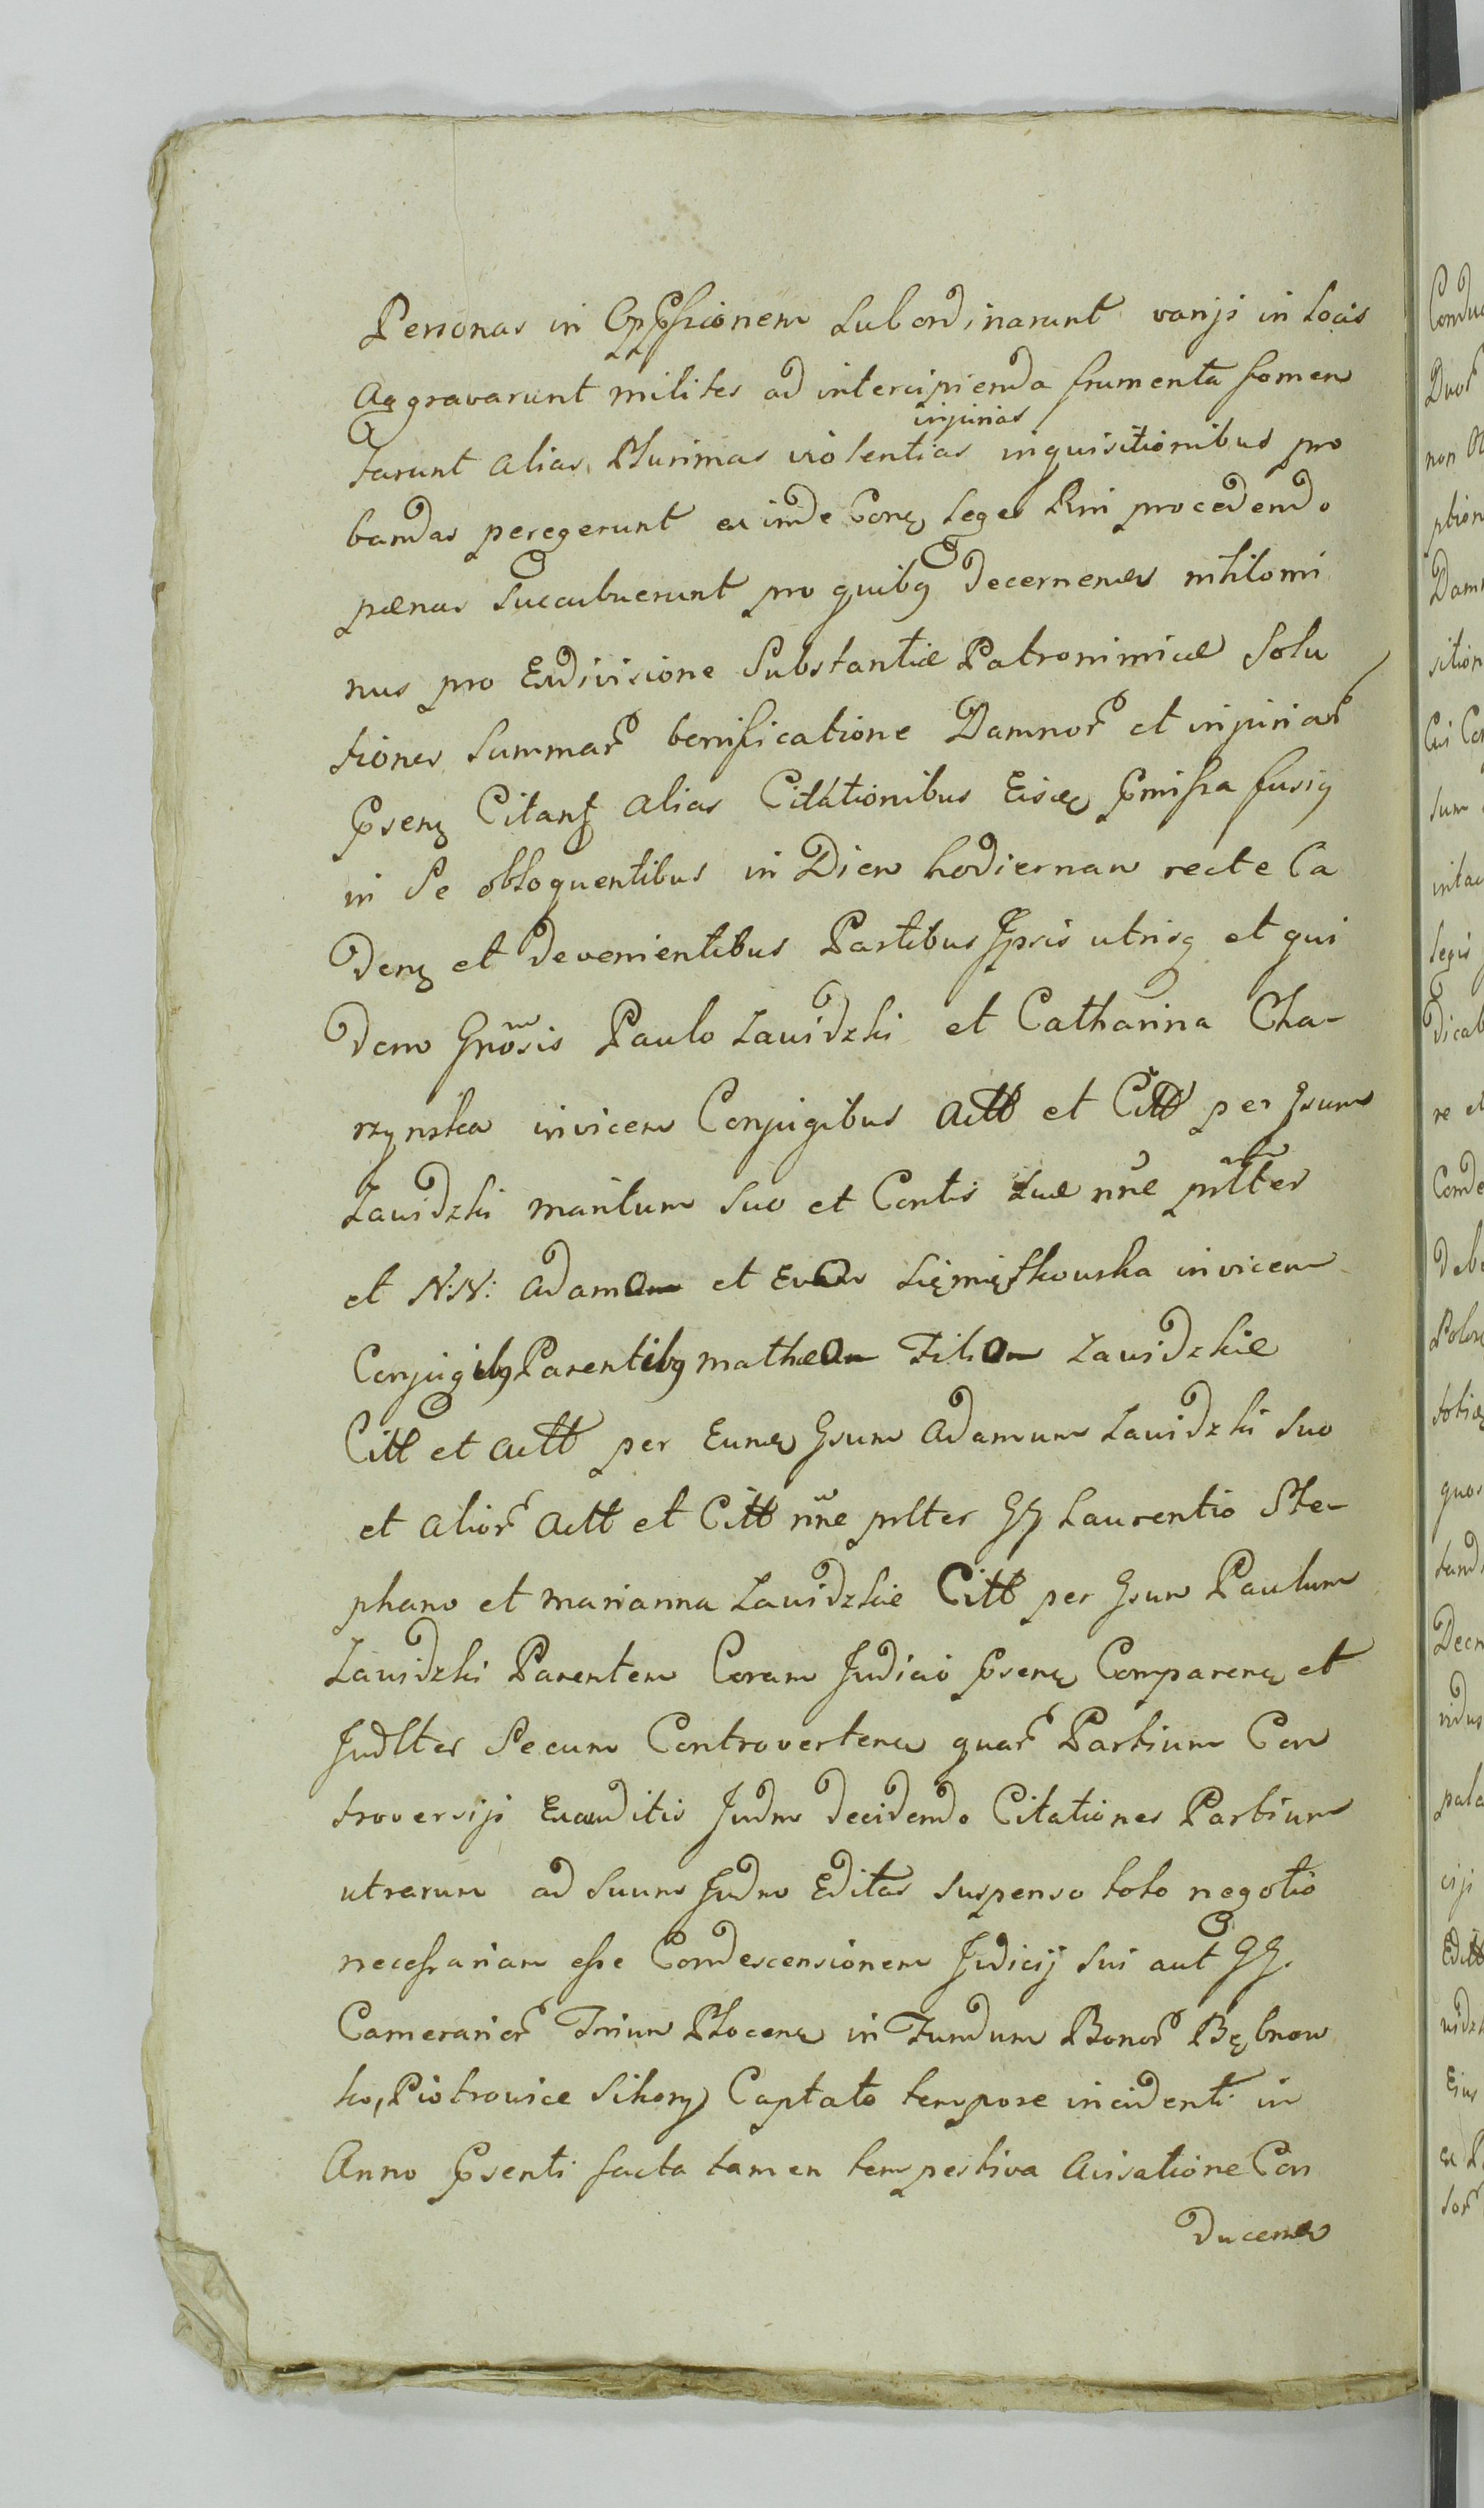 Personas in Oppssionem Subordinarunt varijs in Locis
Aggravarunt milites ad intercipienda frumenta fomen
tarunt alias Plurimas violentias injurias inquisitionibus pro
bandas peregerunt ex inde Conq Leges Rni procedendo
pænas Succubuerunt pro quibq Decernenes nihilomi
nus pro Exdivisione Substantiæ Patronimicæ Solu
tiones Summar bonificatione Damnor et injuriar
Psenq Citanq alias Citationibus Eisdeq Pmissa fusiq
in Se obloquentibus in Diem hodiernam recte Ca
denq et devenientibus Partibus Ipsis utrisq et qui
dem Gnosis Paulo Zawidzki et Catharina Cha-
rzynska invicem Conjugibus Actt et Citt per Gsum
Zawidzki maritum Suo et Contis Suæ nne pnltter
et N:N: Adam et Eva Siemiątkowska invicem
Conjugibq Parentibq mathæ Fili Zawidzkie
Citt et actt per Eunq Gsum Adamum Zawidzki Suo
et alior Actt et Citt nne pnlter GG Laurentio Ste-
phano et marianna Zawidzkie Citt per Gsum Paulum
Zawidzki Parentem Coram Judicio Psenq Comparenq et
Judlter Secum Controvertenq quar Partium Con
troversijs Exauditis Judm decidendo Citationes Partium
utrarum ad Suum Judm Editas suspenso toto negotio
necessariam esse Condescensionem Judicij Sui aut GG.
Camerarior Trium Plocenq in Fundum Bonor Bębnow
ko, Piotrowice Sikory Captato tempore incidenti in
Anno Psenti facta tamen tempestiva Avisatione Con
ducenq